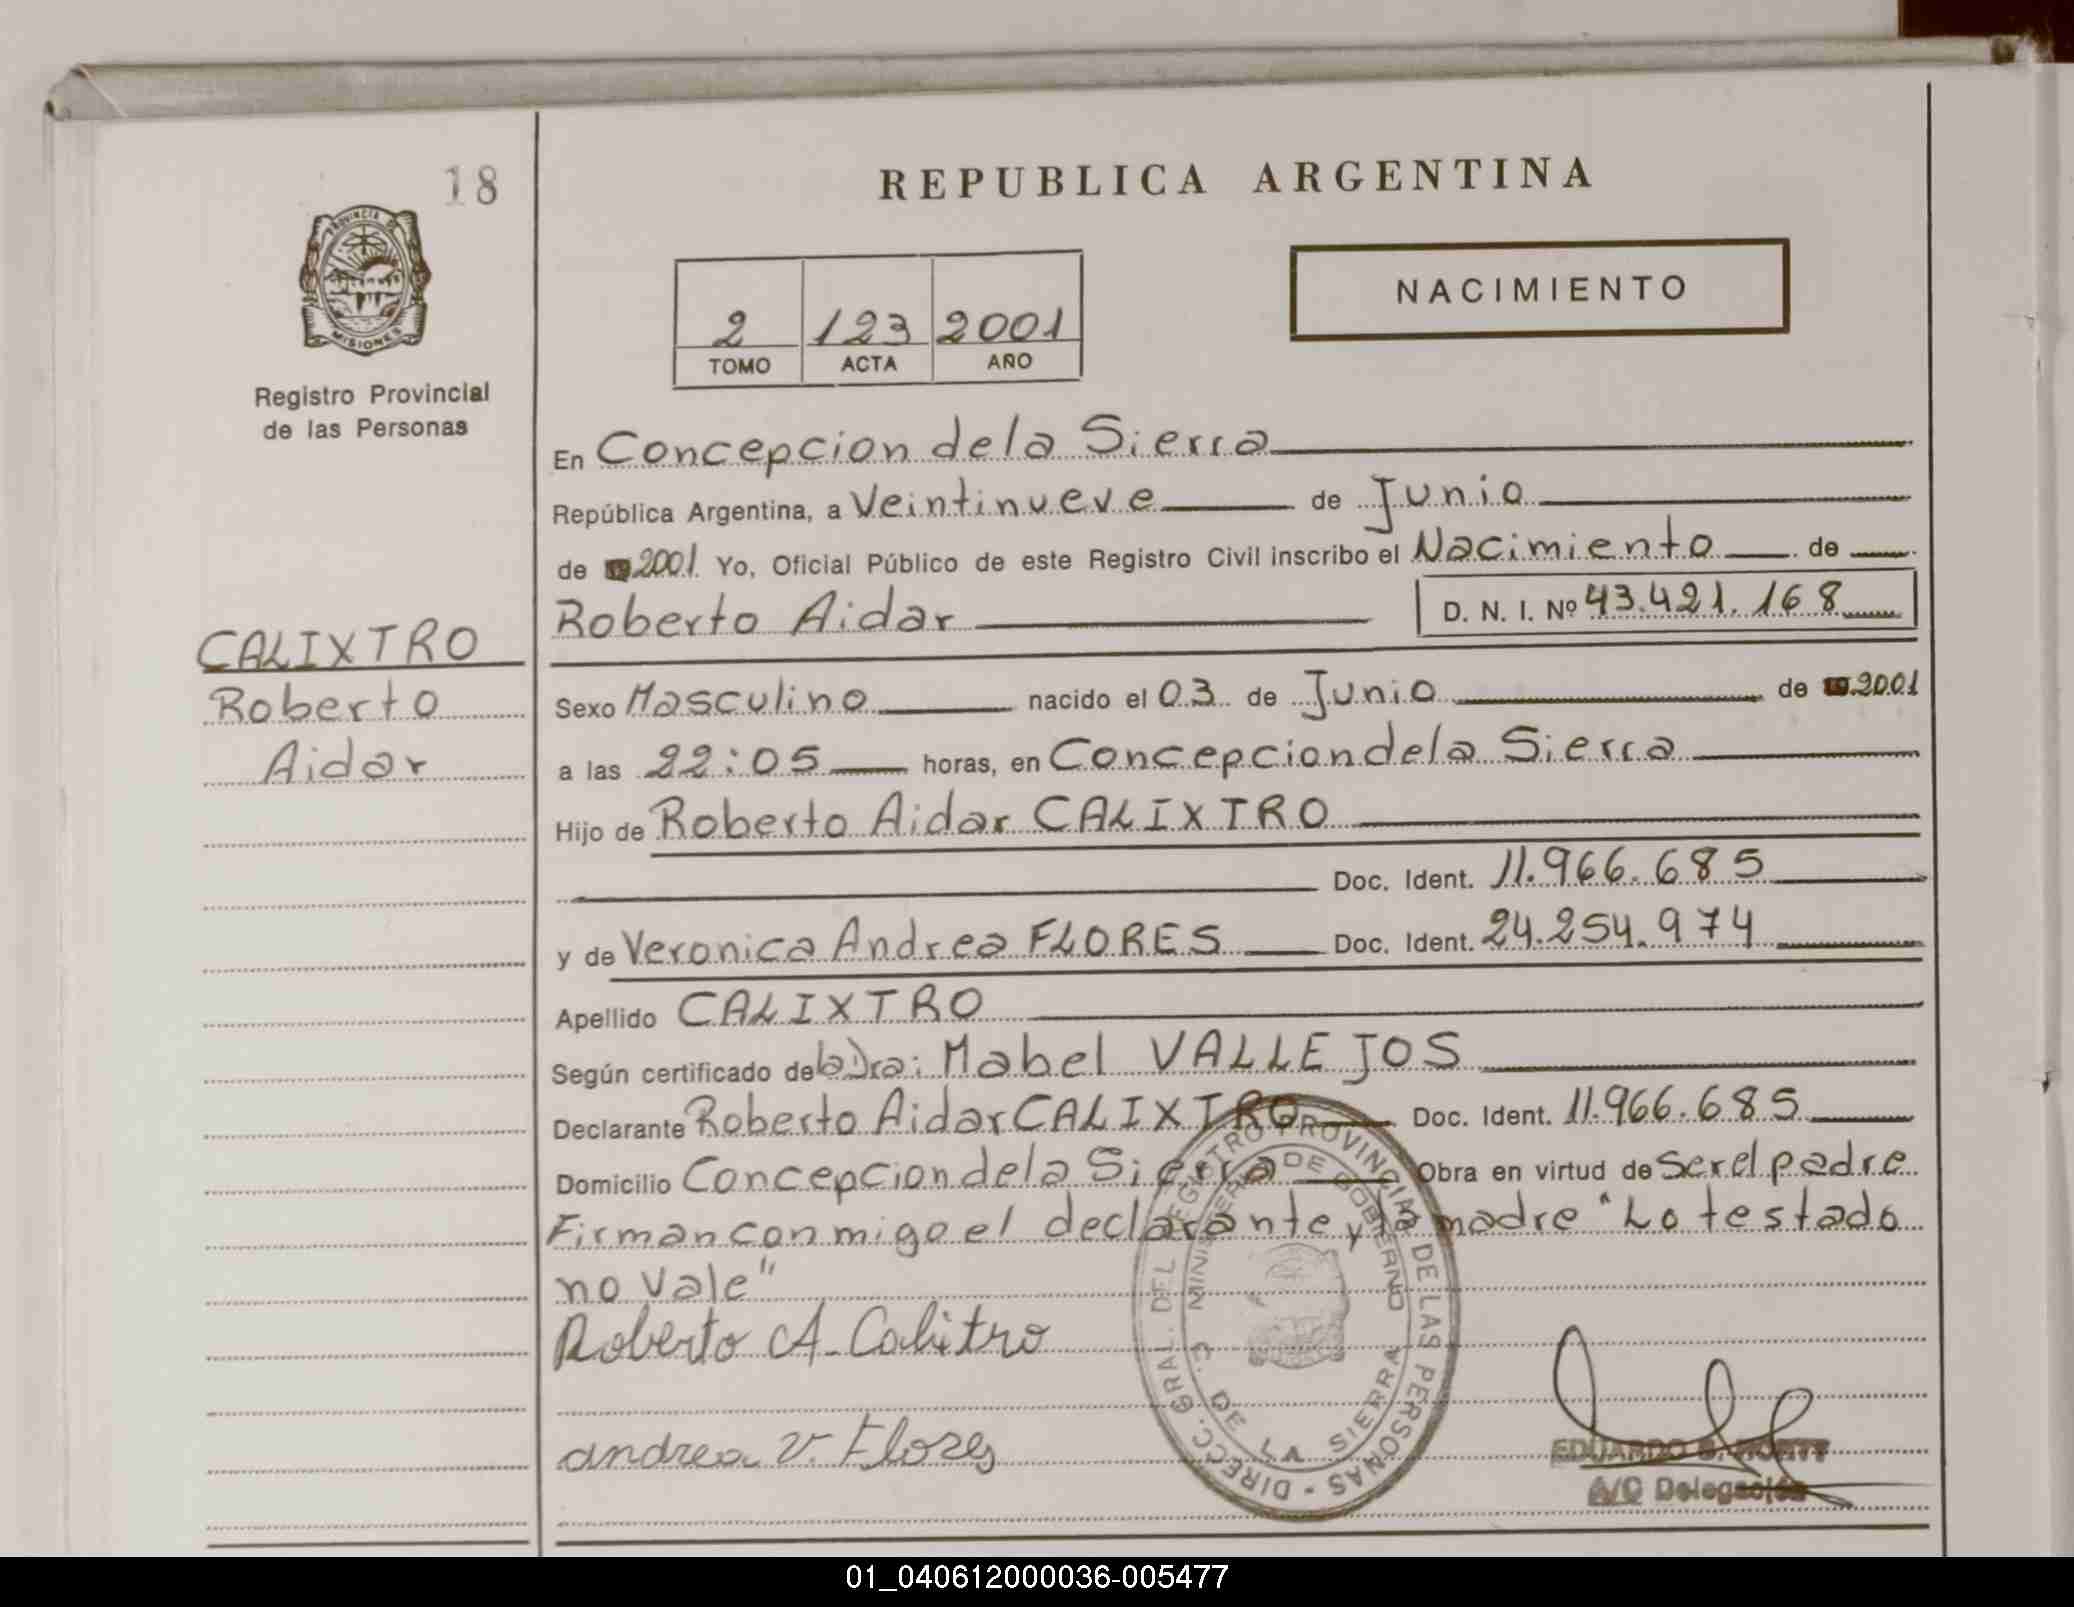 18
PROVINCIA DE
MISIONES
Registro Provincial
de las Personas
CALIXTRO
Roberto
Aidar
REPUBLICA ARGENTINA
NACIMIENTO
2 123 2001
TOMO ACTA AÑO
En Concepcion de la Sierra
República Argentina, a Veintinueve de Junio
de 19 2001 Yo, Oficial Público de este Registro Civil inscribo el Nacimiento de
Roberto Aidar D. N. I. Nº 43.421.168
Sexo Masculino nacido el 03 de Junio de 19 2001
a las 22:05 horas, en Concepcion de la Sierra
Hijo de Roberto Aidar CALIXTRO
Doc. Ident. 11.966.685
y de Veronica Andrea FLORES Doc. Ident. 24.254.974
Apellido CALIXTRO
Según certificado de la Dra: Mabel VALLEJOS
Declarante Roberto Aidar CALIXTRO Doc. Ident. 11.966.685
Domicilio Concepcion de la Sierra Obra en virtud de ser el padre
Firman conmigo el declarante y la madre "Lo testado
no vale"
Roberto A. Calixtro
andrea v. Flores
DIRECC. GRAL. DEL REGISTRO PROVINCIAL DE LAS PERSONAS -
MINISTERIO DE GOBIERNO
C. DE LA SIERRA
EDUARDO
A/C Delegación
01_040612000036-005477